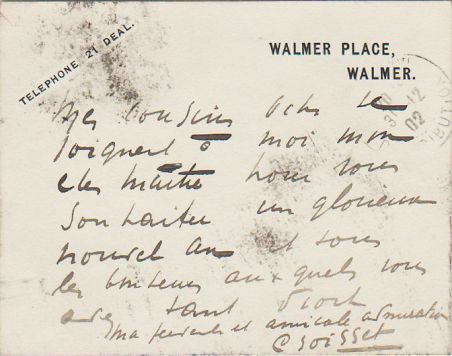 TELEPHONE 21 DEAL.
WALMER PLACE,
WALMER.
30
12
02
Mes cousins Ochs se
joignent à moi mon
cher maître pour vous
souhaiter un glorieux
nouvel an et tous
les bonheurs auxquels vous
avez tant droit
ma fervente et amicale admiration